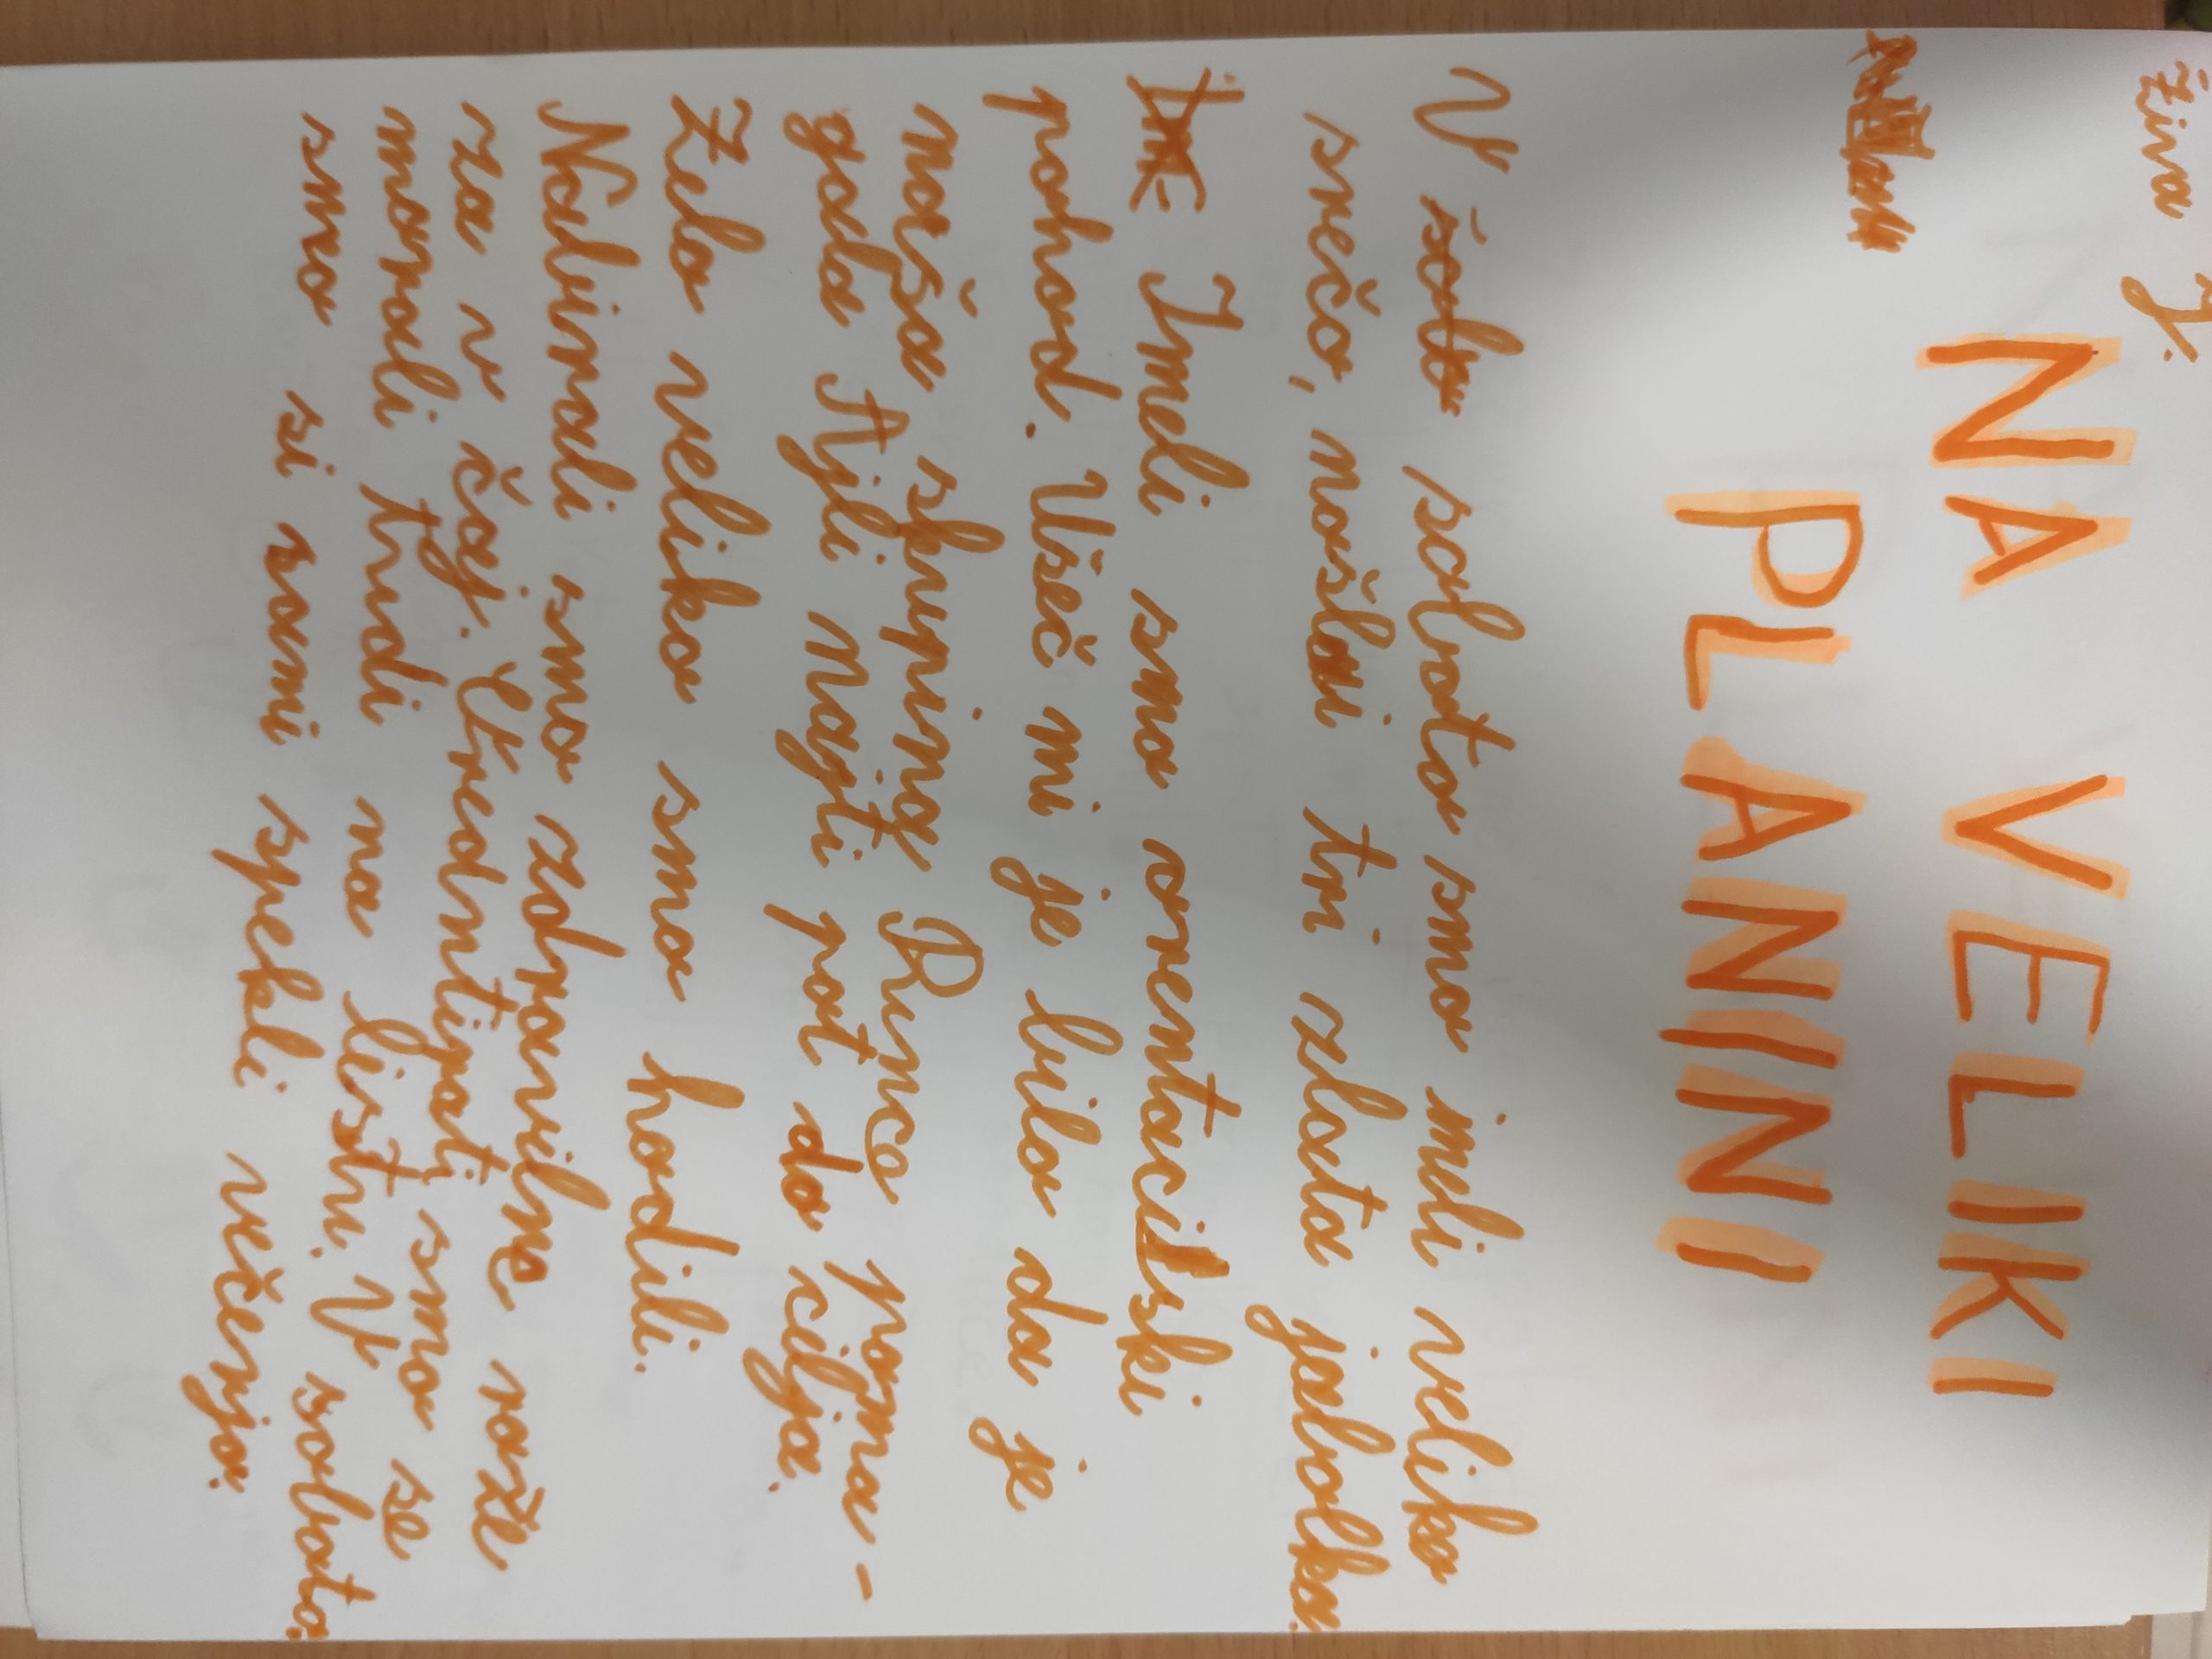 Živa J.
NA VELIKI
PLANINI
V šolo soboto smo imeli veliko
srečo, našla tri zlata jabolka.
Imeli smo orentaciski
pohod. Všeč mi je bilo da je
naša skupina Runca poma-
gala Ajli najti pot do cilja.
Zelo veliko smo hodili.
Nabirali smo zdravilne rože
za v čaj. Uredntipati smo se
morali tudi na listu. V soboto
smo si sami spekli večerjo.